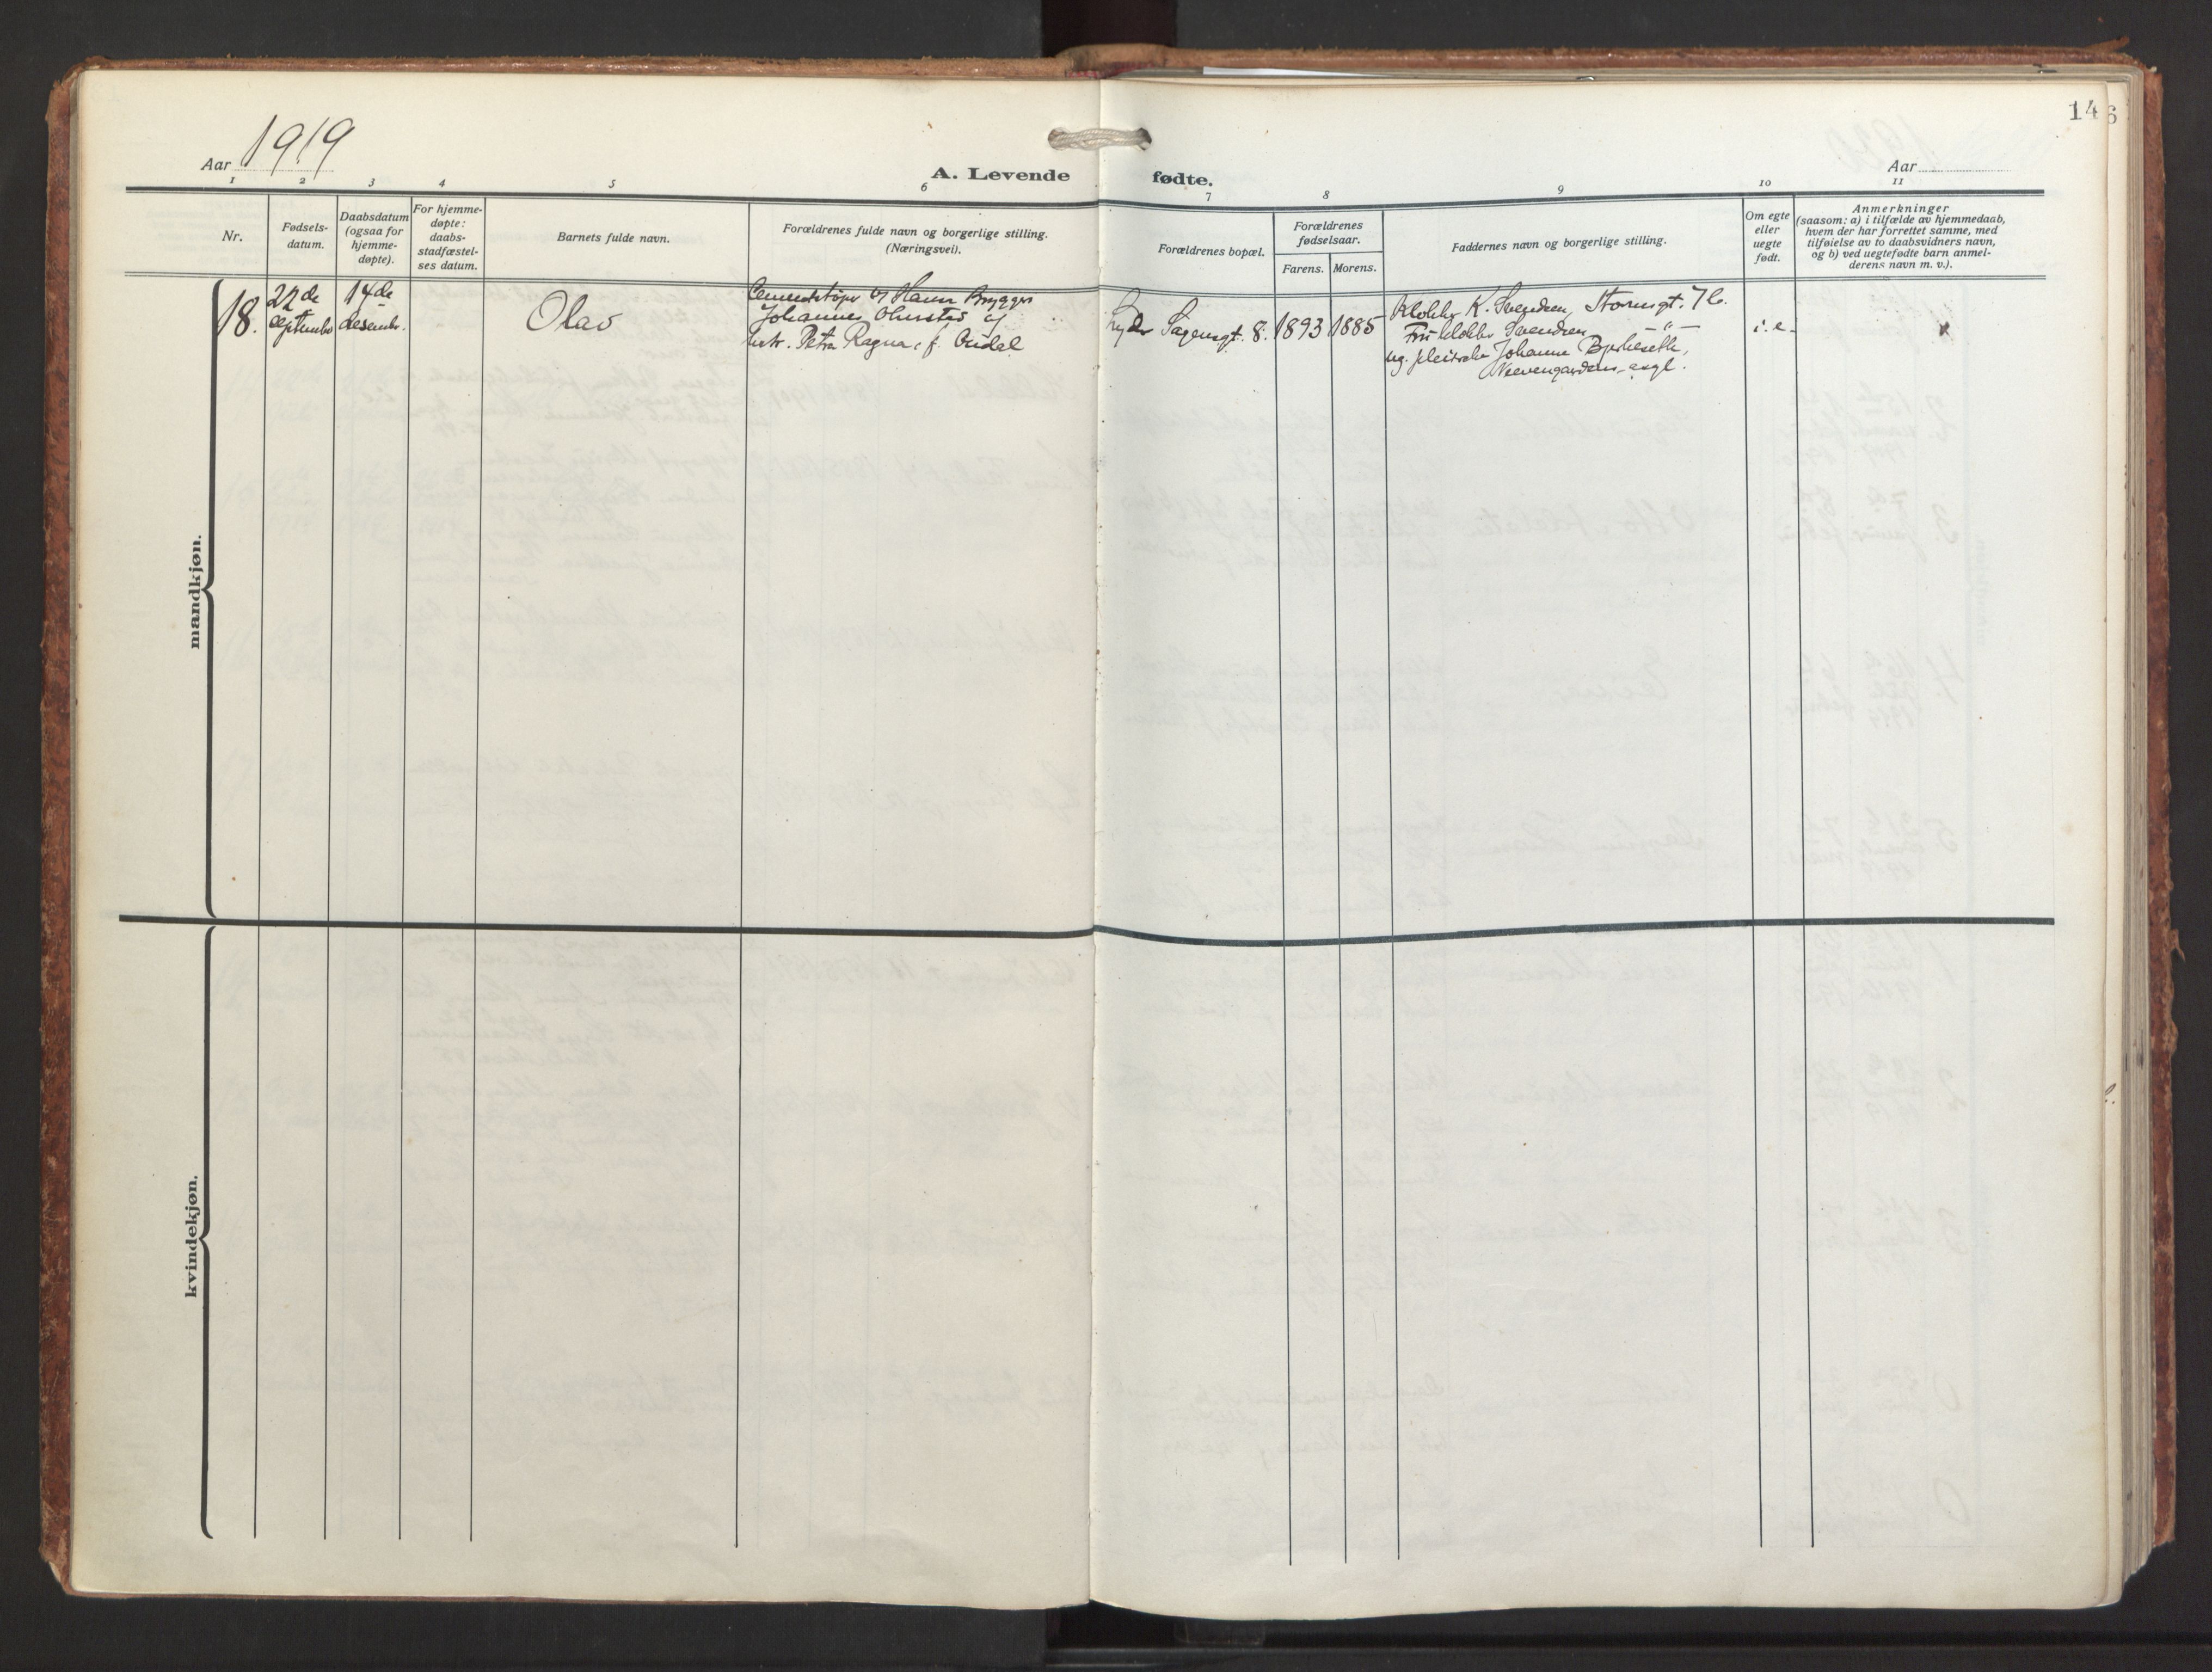 146
Aar 1919
A. Levende fødte.
Aar
1 2 3 4 5 6 7 8 9 10 11
Nr.
Fødsels-
datum.
Daabsdatum
(ogsaa for
hjemme-
døpte).
For hjemme-
døpte:
daabs-
stadfæstel-
ses datum.
Barnets fulde navn.
Forældrenes fulde navn og borgerlige stilling.
(Næringsvei).
Forældrenes bopæl.
Forældrenes
fødselsaar.
Farens. Morens.
Faddernes navn og borgerlige stilling.
Om egte
eller
uegte
født.
Anmerkninger
(saasom: a) i tilfælde av hjemmedaab,
hvem der har forrettet samme, med
tilføielse av to daabsvidners navn,
og b) ved uegtefødte barn anmel-
derens navn m. v.).
mandkjøn.
18.
22de
september
14de
desembr.
Olav
Johannes og
Petra Ragna f.
Lyder Sagensgt. 8.
1893 1885
Klokker K. Svendsen, 
Fru klokker Svendsen —"—
ug. pleierske Johanne
Neevengaardens asyl.
i. e.
x
kvindekjøn.